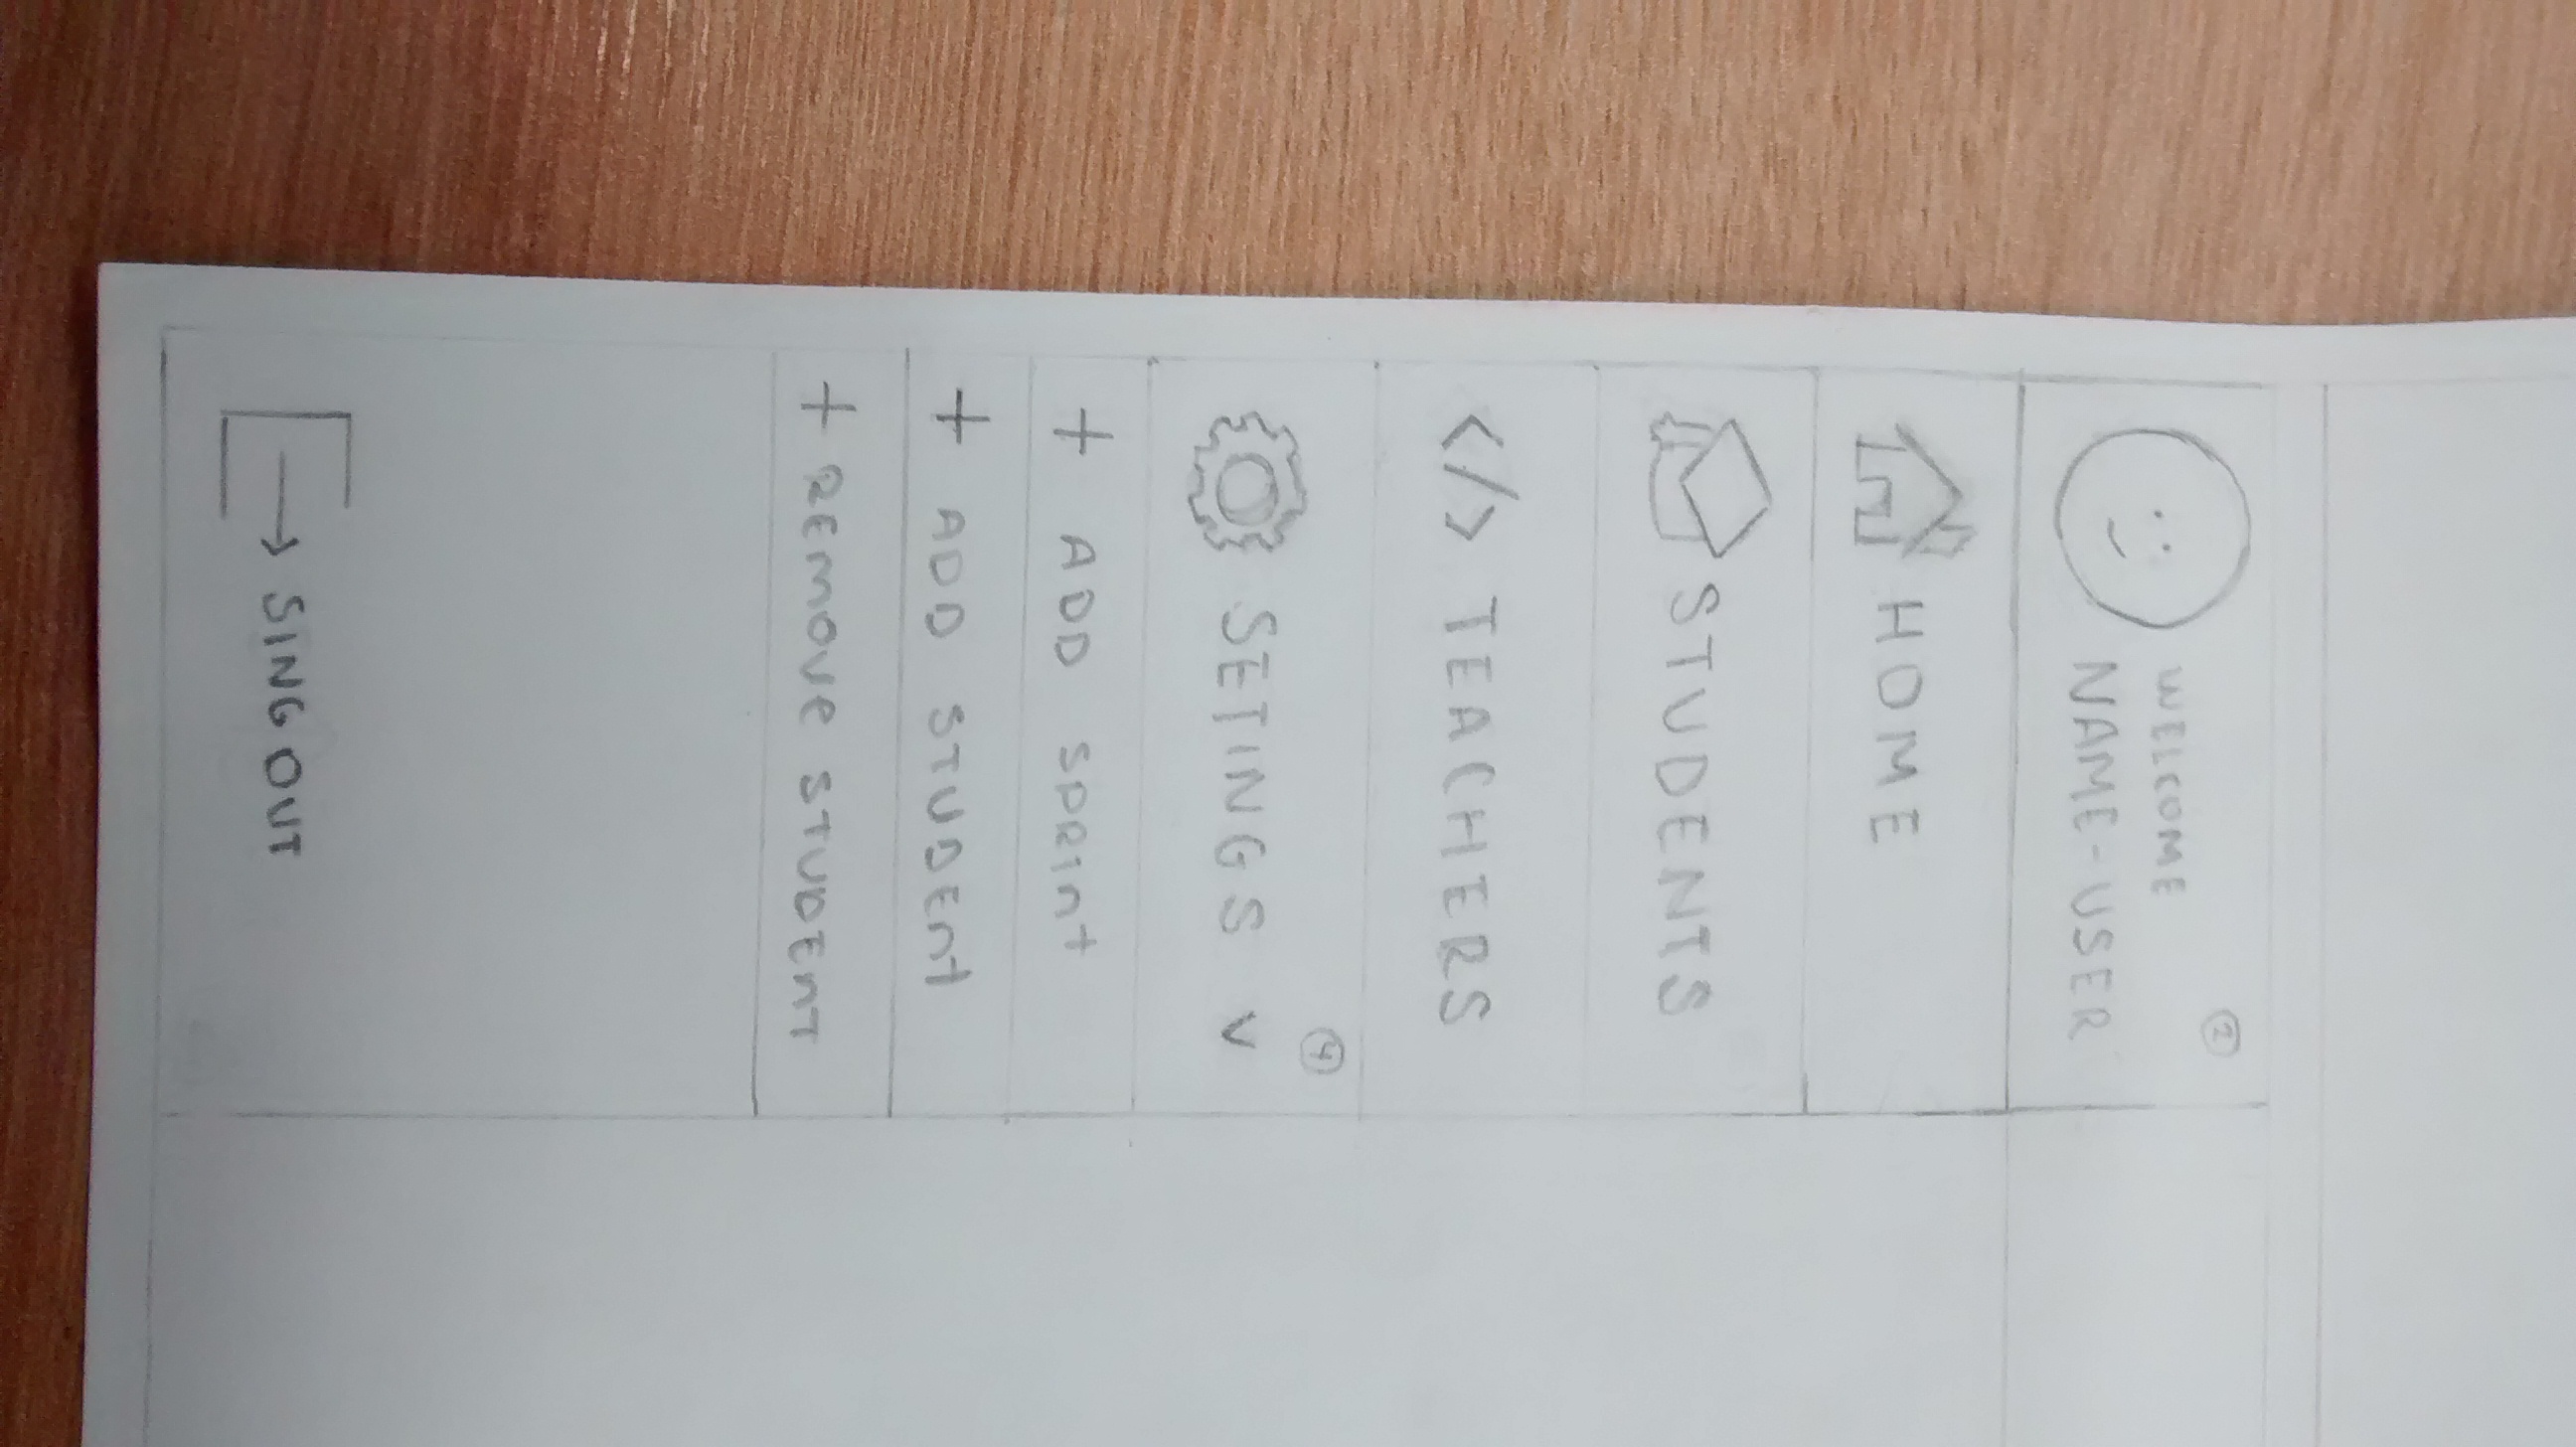 ②
WELCOME
NAME-USER
HOME
STUDENTS
</> TEACHERS
④
SETINGS v
+ ADD SPRINT
+ ADD STUDENT
+ REMOVE STUDENT
SING OUT